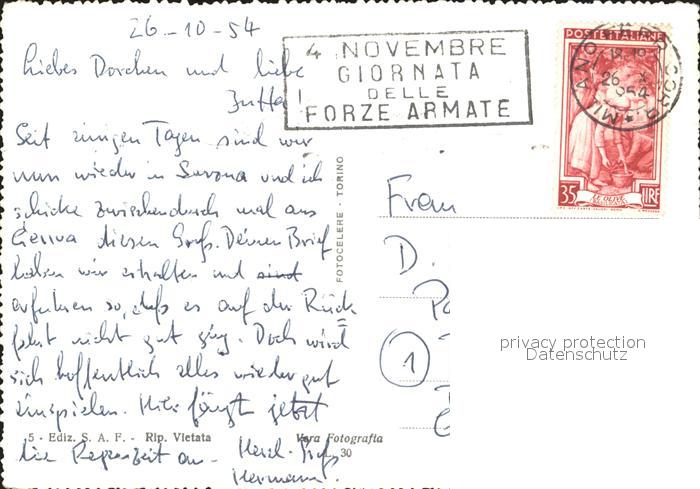 26-10-54
4 NOVEMBRE
GIORNATA
DELLE
FORZE ARMATE
POSTE ITALIANE
35 LIRE
LE OLIVE
Liebes Dorchen und liebe
Jutta!
Seit einigen Tagen sind wir
nun wieder in Savona und ich
schicke zwischendurch mal aus
Genua diesen Gruß. Deinen Brief
haben wir erhalten und sind
erfuhren so, daß es auf der Rück
fahrt nicht gut ging. Doch wird
sich hoffentlich alles wieder gut
einspielen. Hier fängt jetzt
die Regenzeit an. Herzl. Gruß
Hermann.
FOTOCELERE - TORINO
Frau
D.
1
privacy protection
Datenschutz
5 - Ediz. S. A. F. - Rip. Vietata
Vera Fotografia
30